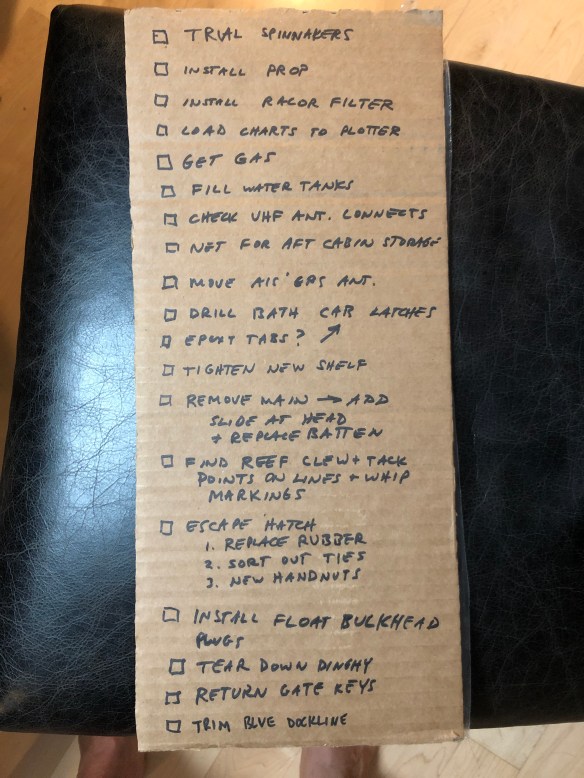 TRIAL SPINNAKERS
INSTALL PROP
INSTALL RACOR FILTER
LOAD CHARTS TO PLOTTER
GET GAS
FILL WATER TANKS
CHECK VHF ANT. CONNECTS
NET FOR AFT CABIN STORAGE
MOVE AIS GPS ANT.
DRILL BATH CAB LATCHES
EPOXY TABS? ↗
TIGHTEN NEW SHELF
REMOVE MAIN → ADD
SLIDE AT HEAD
+ REPLACE BATTEN
FIND REEF CLEW + TACK
POINTS ON LINES + WHIP
MARKINGS
ESCAPE HATCH
1. REPLACE RUBBER
2. SORT OUT TIES
3. NEW HANDNUTS
INSTALL FLOAT BULKHEAD
PLUGS
TEAR DOWN DINGHY
RETURN GATE KEYS
TRIM BLUE DOCKLINE